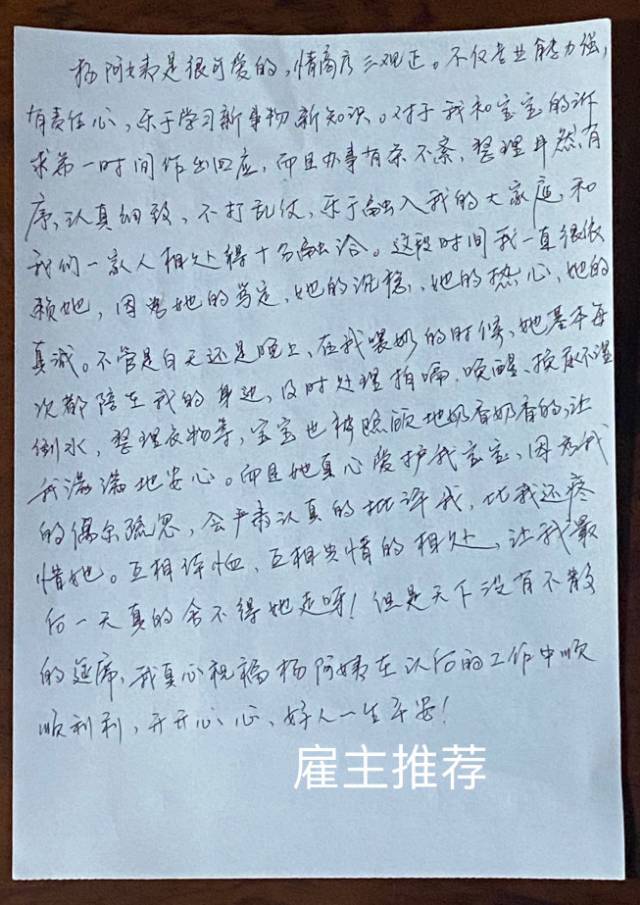 杨阿姨是很可爱的,情商高三观正。不仅专业能力强,
有责任心,乐于学习新事物新知识。对于我和宝宝的诉
求第一时间作出回应,而且办事有条不紊,整理井然有
序,认真细致,不打乱仗,乐于融入我的大家庭,和
我们一家人相处得十分融洽。这段时间我一直很依
赖她,因为她的笃定、她的沉稳、她的热心、她的
真诚。不管是白天还是晚上,在我喂奶的时候,她基本每
次都陪在我的身边,及时处理拍嗝、唤醒、
倒水,整理衣物等,宝宝也被照顾地奶香奶香的,让
我满满地安心。而且她真心爱护我宝宝、因为我
的偶尔疏忽,会严肃认真的批评我,比我还疼
惜她。互相体恤,互相共情的相处,让我最
后一天真的舍不得她走呀!但是天下没有不散
的筵席,我真心祝福杨阿姨在以后的工作中顺
顺利利,开开心心、好人一生平安!
雇主推荐